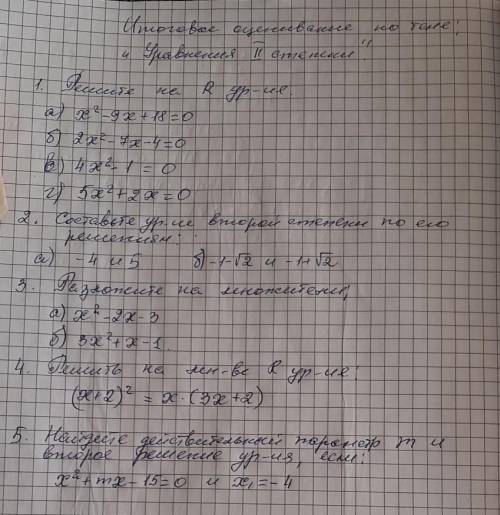 Итоговое оценивание по теме:
„Уравнения II степени".
1. Решите на R ур-ие:
а) x²-9x+18=0
б) 2x²-7x-4=0
в) 4x²-1=0
г) 5x²+2x=0
2. Составьте ур-ие второй степени по его
решениям:
а) -4 и 5   б) -1-√2 и -1+√2
3. Разложите на множители:
а) x²-2x-3
б) 3x²+x-1.
4. Решить на мн-ве R ур-ие:
(x+2)² = x·(3x+2)
5. Найдите действительный параметр m и
второе решение ур-ия, если:
x²+mx-15=0 и x₁=-4